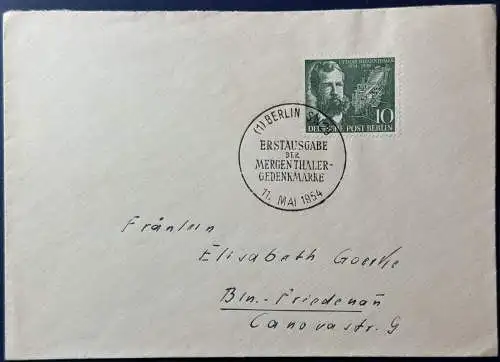 OTTMAR MERGENTHALER
1854 1954
10
DEUTSCHE POST BERLIN
(1) BERLIN SW
ERSTAUSGABE
DER
MERGENTHALER-
GEDENKMARKE
11. MAI 1954
Fräulein
Elisabeth Goerke
Bln.-Friedenau
Canovastr. 9